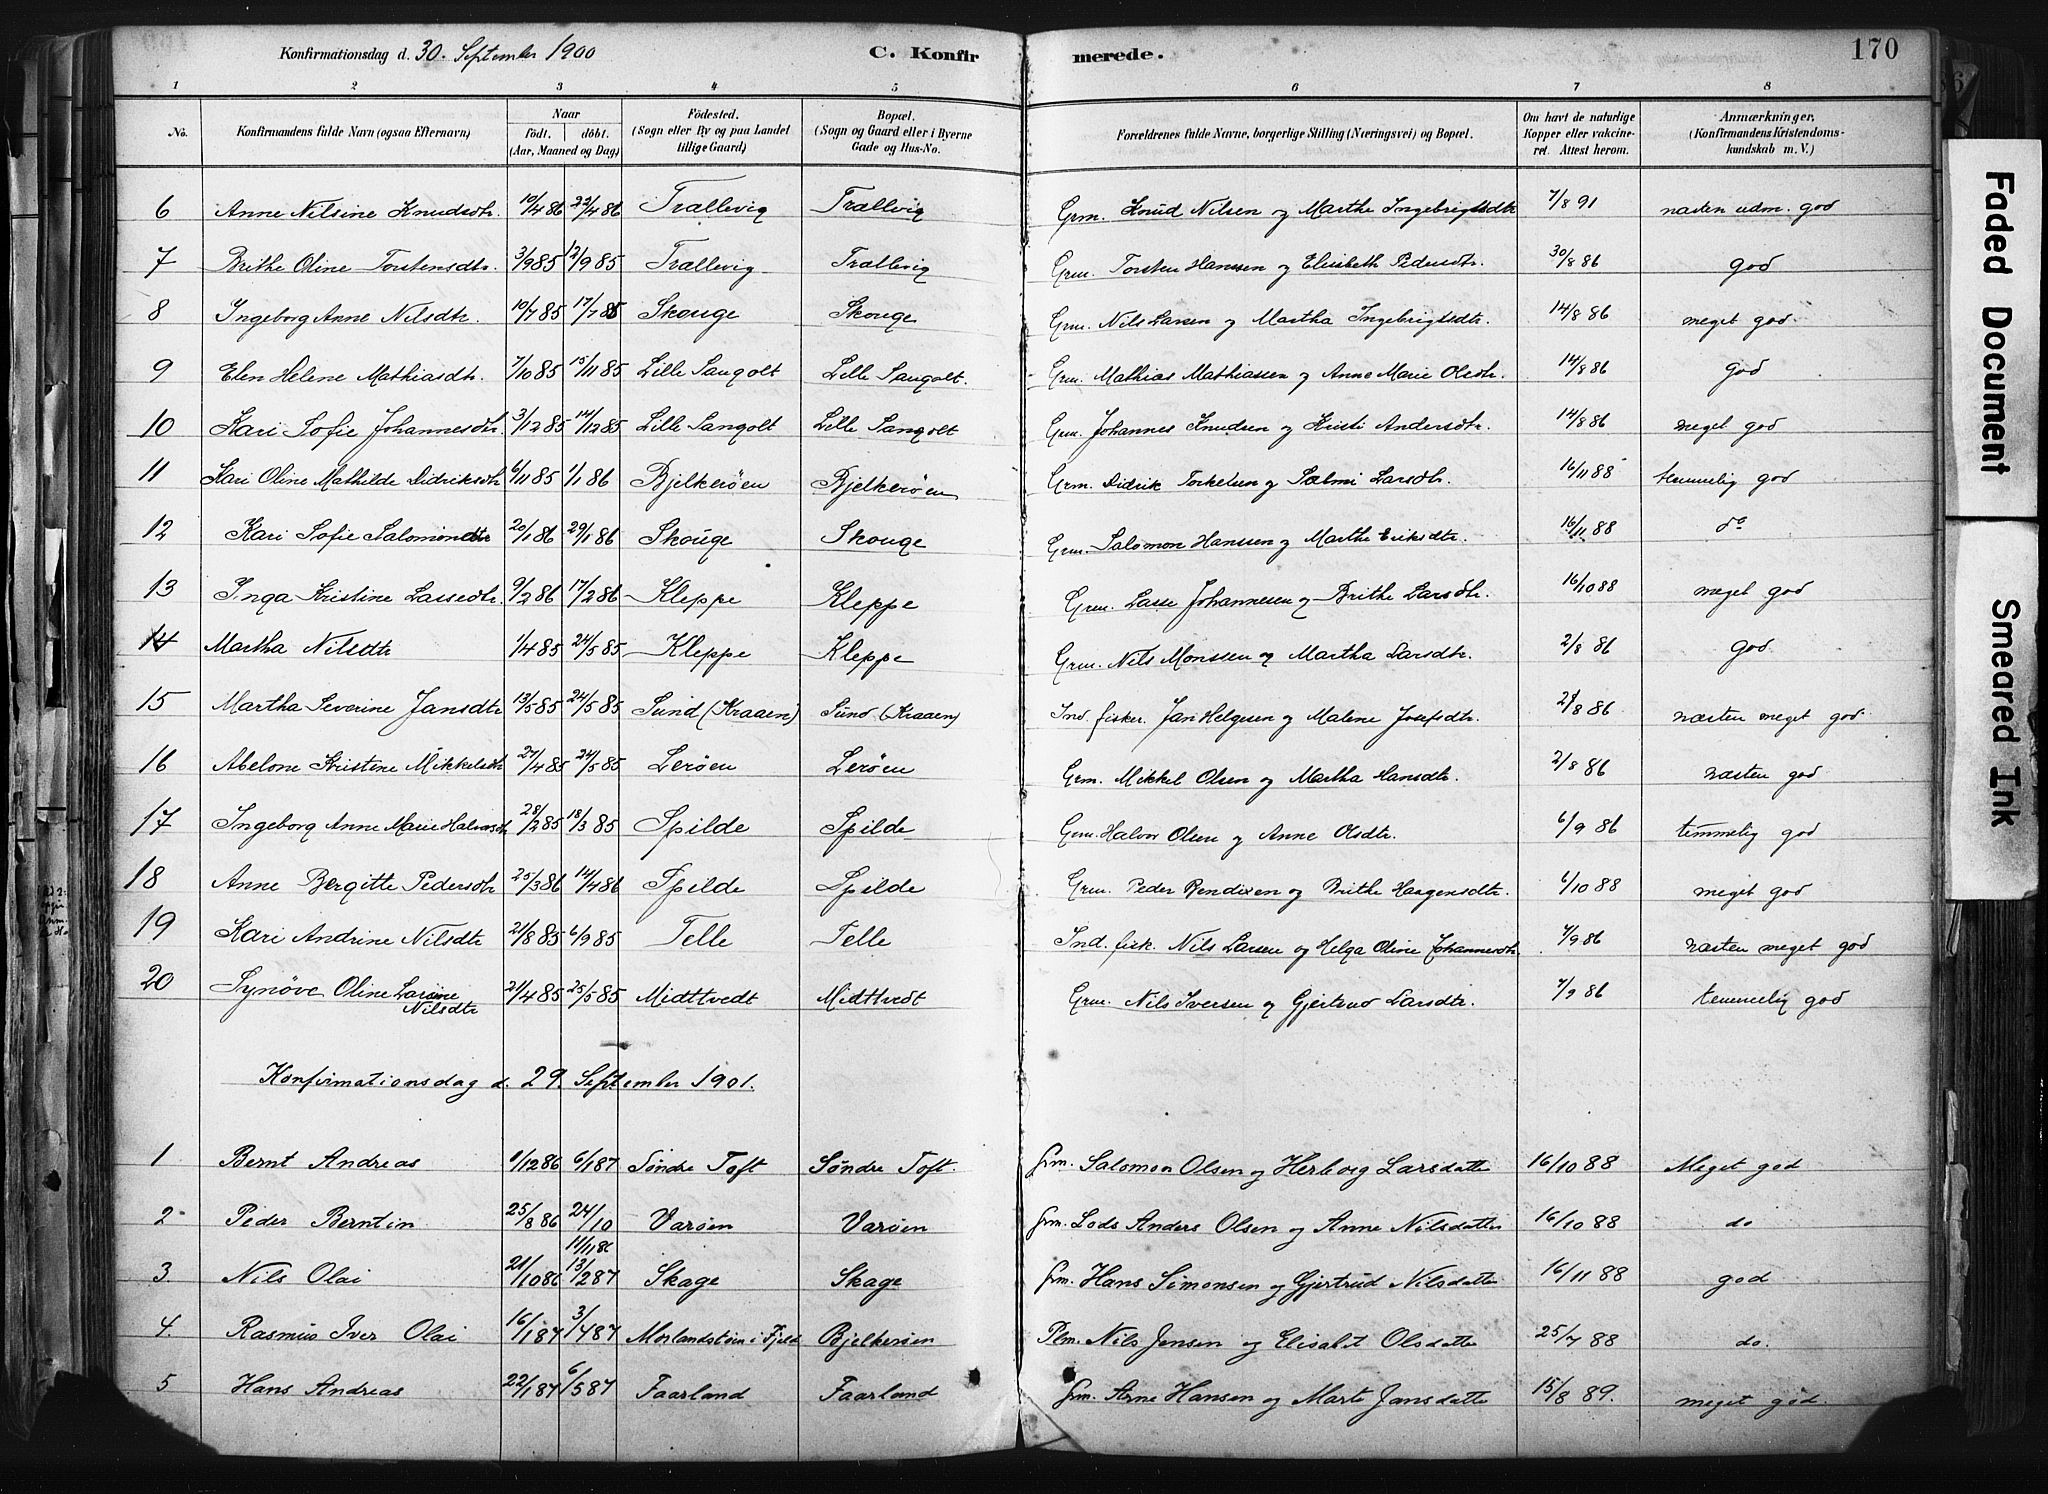 Konfirmationsdag d. 30. September 1900 C. Konfirmerede. 170
1 2 3 4 5 6 7 8
No. Konfirmandens fulde Navn (ogsaa Efternavn) Naar födt. döbt. (Aar, Maaned og Dag) Födested. (Sogn eller By og paa Landet tillige Gaard) Bopæl. (Sogn og Gaard eller i Byerne Gade og Hus-No. Forældrenes fulde Navne, borgerlige Stilling (Næringsvei) og Bopæl. Om havt de naturlige Kopper eller vakcineret. Attest herom. Anmærkninger, (Konfirmandens Kristendomskundskab m. V.)
6 Anne Nilsine Knudsdtr 10/4 86 22/4 86 Trællevig Trællvig Grm. Knud Nilsen og Marthe Ingebrigtsdtr 7/8 91 næsten udm. god
7 Brithe Oline Torstensdtr. 3/9 85 12/9 85 Trællevig Trællevig Grm. Torsten Hanssen og Elisabeth Pedersdtr. 30/8 86 god
8 Ingeborg Anne Nilsdtr. 10/7 85 17/7 85 Skouge Skouge Grm. Nils Larsen og Martha Ingebrigtsdtr. 14/8 86 meget god
9 Elen Helene Mathiasdtr. 7/10 85 15/11 85 Lille Sangolt Lille Sangolt. Grm. Mathias Mathiassen og Anne Marie Olsdtr. 14/8 86 god
10 Kari Sofie Johannesdtr. 3/12 85 14/12 85 Lille Sangolt Lille Sangolt Grm. Johannes Knudsen og Kristi Andersdtr. 14/8 86 meget god
11 Kari Oline Mathilde Didriksdtr 6/11 85 1/1 86 Bjelkeröen Bjelkeröen Grm. Didrik Torkelsen og Sælmi Larsdtr. 16/11 88 temmelig god
12 Kari Sofie Salomonsdtr 20/1 86 29/1 86 Skouge Skouge Grm. Salomon Hanssen og Marthe Eriksdtr. 16/11 88 do
13 Inga Kristine Lassedtr. 9/2 86 17/2 86 Kleppe Kleppe Grm. Lasse Johannesen og Brithe Larsdtr. 16/10 88 meget god
14 Martha Nilsdtr 1/4 85 24/5 85 Kleppe Kleppe Grm. Nils Monssen og Martha Larsdtr. 2/8 86 god
15 Martha Severine Jansdtr 13/5 85 24/5 85 Sund (Kraaen) Sund (Kraaen) Ind. fisker. Jan Helgesen og Malene Josefsdtr. 2/8 86 næsten meget god
16 Abelone Kristene Mikkelsdtr 27/4 85 24/5 85 Leröen Leröen Grm. Mikkel Olsen og Martha Hansdtr. 2/8 86 næsten god
17 Ingeborg Anne Marie Halvorsdtr 28/2 85 18/3 85 Spilde Spilde Grm. Halvor Olsen og Anne Olsdtr. 6/9 86 temmelig god
18 Anne Bergitte Pedersdtr 25/3 86 14/4 86 Spilde Spilde Grm. Peder Rendixen og Brithe Haagensdtr. 6/10 88 meget god
19 Kari Andrine Nilsdtr 21/8 85 6/9 85 Telle Telle Ind. fisk. Nils Larsen og Helga Oline Johannesdtr. 7/9 86 næsten meget god
20 Synöve Oline Larsine Nilsdtr 21/4 85 25/5 85 Midttvedt Midttvedt Grm. Nils Iversen og Gjertrud Larsdtr. 7/9 86 temmelig god
Konfirmationsdag d. 29 September 1901.
1 Bernt Andreas 1/12 86 6/1 87 Söndre Toft Söndre Toft. Grm. Salomon Olsen og Herborg Larsdatter 16/10 88 Meget god
2 Peder Berntin 25/8 86 24/10 Varöen Varöen Grm. Lods Anders Olsen og Anne Nilsdatter 16/10 88 do
3. Nils Olai 21/10 86 11/11 86 13/2 87 Skage Skage Grm. Hans Simonsen og Gjertrud Nilsdatter 16/11 88 god
4. Rasmus Iver Olai 16/1 87 3/4 87 Morlandstöen i Fjeld Bjelkeröen Plm. Nils Jensen og Elisabet Olsdatter 25/7 88 do.
5 Hans Andreas 22/1 87 6/5 87 Faarland Faarland Grm. Arne Hansen og Marte Jansdatter 15/8 89. meget god.
Faded Document
Smeared Ink